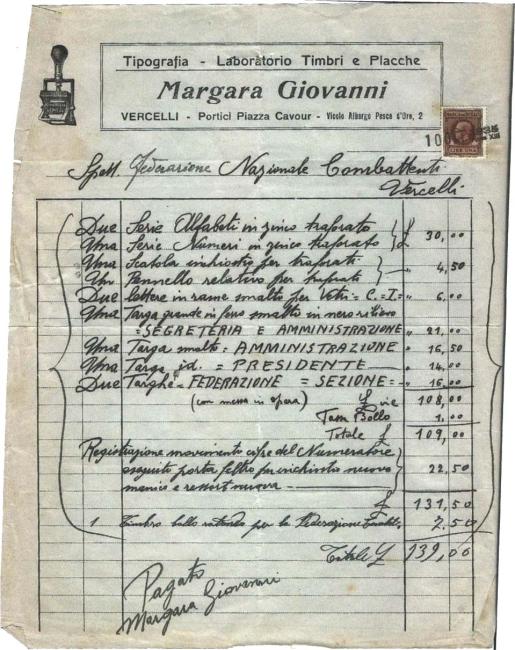 Tipografia - Laboratorio Timbri e Placche
Margara Giovanni
VERCELLI - Portici Piazza Cavour - Vicolo Albergo Pesce d'Oro, 2
LIRE UNA
Spett. Federazione Nazionale Combattenti
Vercelli
Due Serie Alfabeti in zinco traforato
Una Serie Numeri in zinco traforato £ 30,00
Una Scatola inchiostro per traforati
Un Pennello relativo per traforati " 4,50
Due lettere in rame smalto per Vetri = C. = I. = " 6.00
Una Targa grande in ferro smalto in nero rilievo
= SEGRETERIA E AMMINISTRAZIONE " 21,00
Una Targa smalto = AMMINISTRAZIONE " 16,50
Una Targa id. = PRESIDENTE " 14,00
Due Targhe = FEDERAZIONE = SEZIONE = " 16,00
(con messa in opera) £ 108,00
Tassa Bollo 1.00
Totale £ 109,00
Registrazione movimento cifre del Numeratore
eseguito porta feltro per inchiostro nuovo 22,50
manico e ressort nuova -
£ 131,50
1 Timbro bollo rotondo per la Federazione 7.50
Totale £ 139,00
Pagato
Margara Giovanni